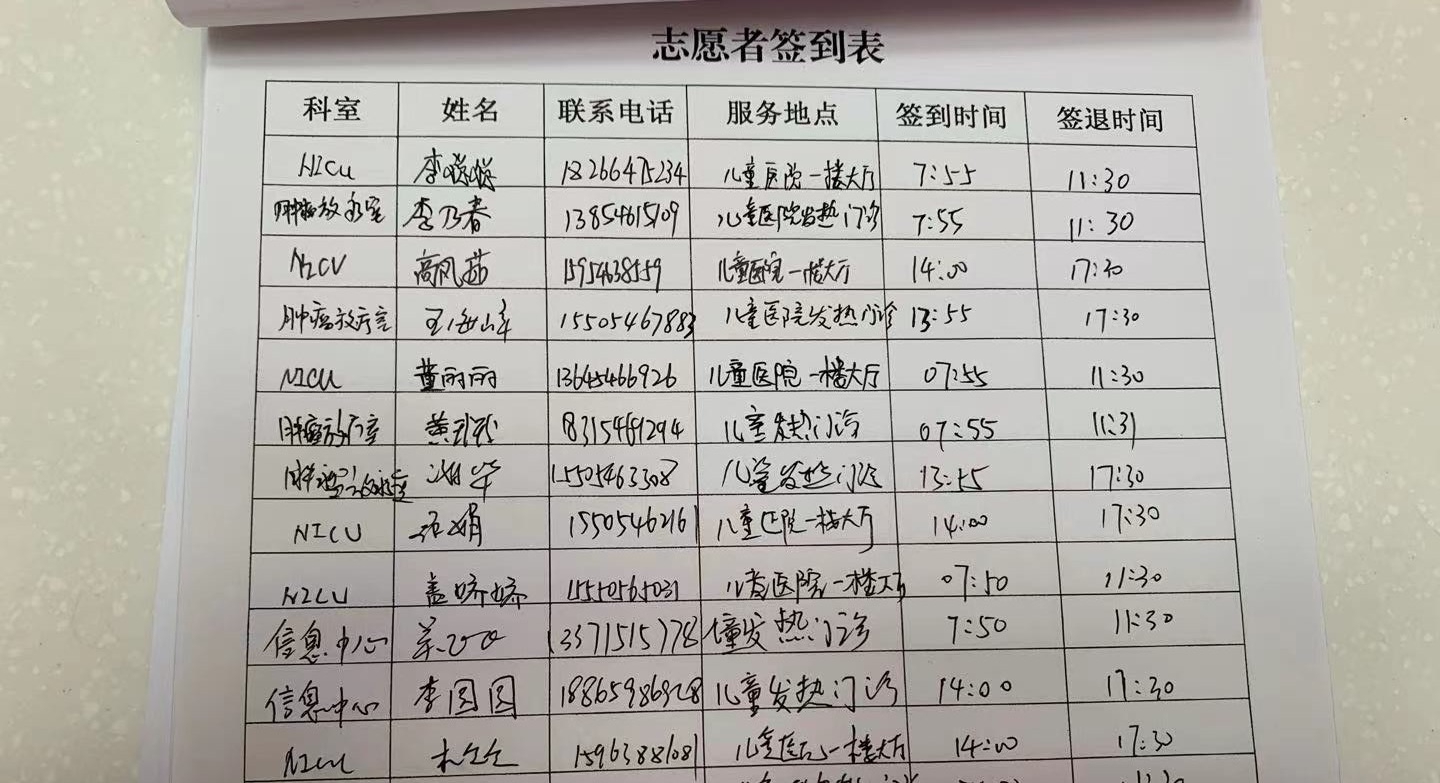 志愿者签到表
科室 姓名 联系电话 服务地点 签到时间 签退时间
NICU 李 18266475234 儿童医院一楼大厅 7:55 11:30
肿瘤放疗室 李乃春 13854615109 儿童医院发热门诊 7:55 11:30
NICU 高风茹 15954638559 儿童医院一楼大厅 14:00 17:30
肿瘤放疗室 王海峰 15505467883 儿童医院发热门诊 13:55 17:30
NICU 董丽丽 13645466926 儿童医院一楼大厅 07:55 11:30
肿瘤放疗室 黄 18315461294 儿童发热门诊 07:55 11:31
肿瘤放疗室 15505463308 儿童发热门诊 13:55 17:30
NICU 娟 1550546216 儿童医院一楼大厅 14:00 17:30
NICU 盖娇娇 1550565031 儿童医院一楼大厅 07:50 11:30
信息中心 13371515778 童发热门诊 7:50 11:30
信息中心 李圆圆 18865986928 儿童发热门诊 14:00 17:30
NICU 15963881681 儿童医院一楼大厅 14:00 17:30